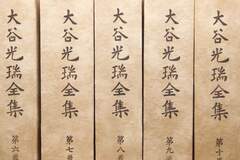 大谷光瑞全集
第六
大谷光瑞全集
第七
大谷光瑞全集
第八
大谷光瑞全集
第九
大谷光瑞全集
第十